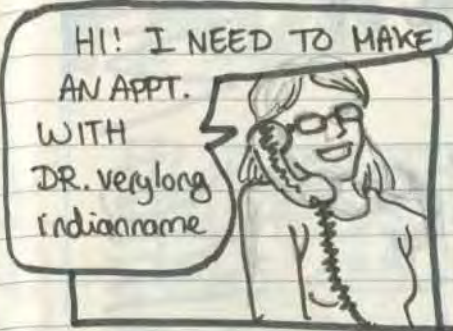 HI! I NEED TO MAKE
AN APPT.
WITH
DR. verylong
indianname